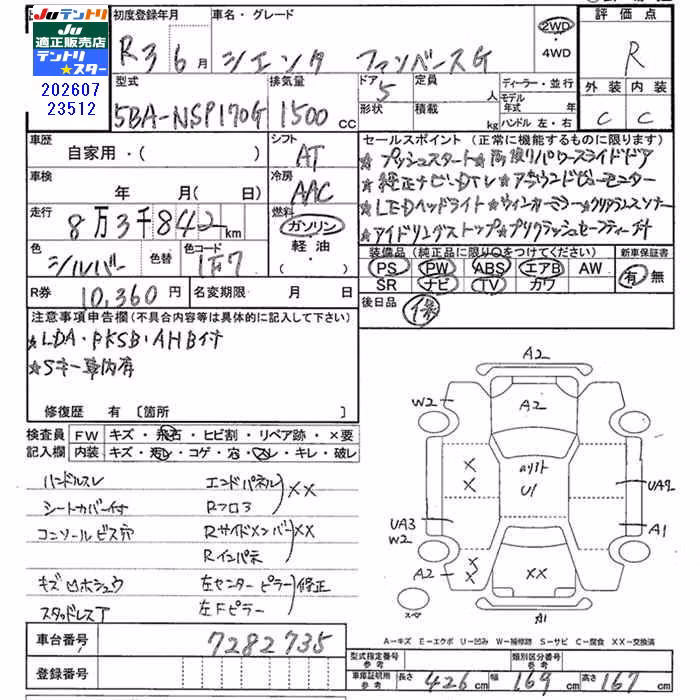 Juテントリ Juテントリ
適正販売店
テントリ
★スター
202607
23512
初度登録年月
R3 6月
車名・グレード
シエンタ ファンベースG
2WD
4WD
評価点
R
外装 内装
C C
型式
5BA-NSP170G
排気量
1500 cc
ドア 5
形状
定員 人
積載 kg
ディーラー・並行
モデル年式 年
ハンドル 左・右
車歴
自家用・( )
シフト
AT
車検
年 月(日)
冷房
AAC
走行
8万3千842km
燃料
ガソリン
軽油
・( )
色
シルバー
色替
色コード
1F7
R券 10,360円
名変期限 月 日
セールスポイント (正常に機能するものに限り)
★プッシュスタート★両側パワースライドドア
★純正ナビ・DTV★アラウンドビューモニター
★LEDヘッドライト★ウィンカーミラー★クリアランスソナー
★アイドリングストップ★プリクラッシュセーフティー付
装備品(純正品に限り○をつけてください)
PS PW ABS エアB AW
SR ナビ TV カワ
新車保証書
有 無
後日品
保
注意事項申告欄(不具合内容等は具体的に記入して下さい)
★LDA・PKSB・AHB付
★Sキー車内有
修復歴 有 [箇所 ]
検査員記入欄
FW キズ・飛石・ヒビ割・リペア跡・×要
内装 キズ・汚レ・コゲ・穴・スレ・キレ・破レ
ハンドルスレ
シートカバー付
コンソールビス穴
キズ凹ホシュウ
スタッドレスT
エンドパネル
Rフロア
××
Rサイドメンバー
Rインパネ
××
左センターピラー
左Fピラー
修正
A2
W2
A2
××
ルーフ
U1
UA2
UA3
W2
A1
A2
××
××
A1
スペア
A-キズ E-エクボ U-凹み W-補修跡 S-サビ C-腐食 XX-交換済
車台番号 7282735
登録番号
型式指定番号 参考
類別区分番号 参考
車庫証明用 参考
長さ 426cm 幅 169cm 高さ 167cm